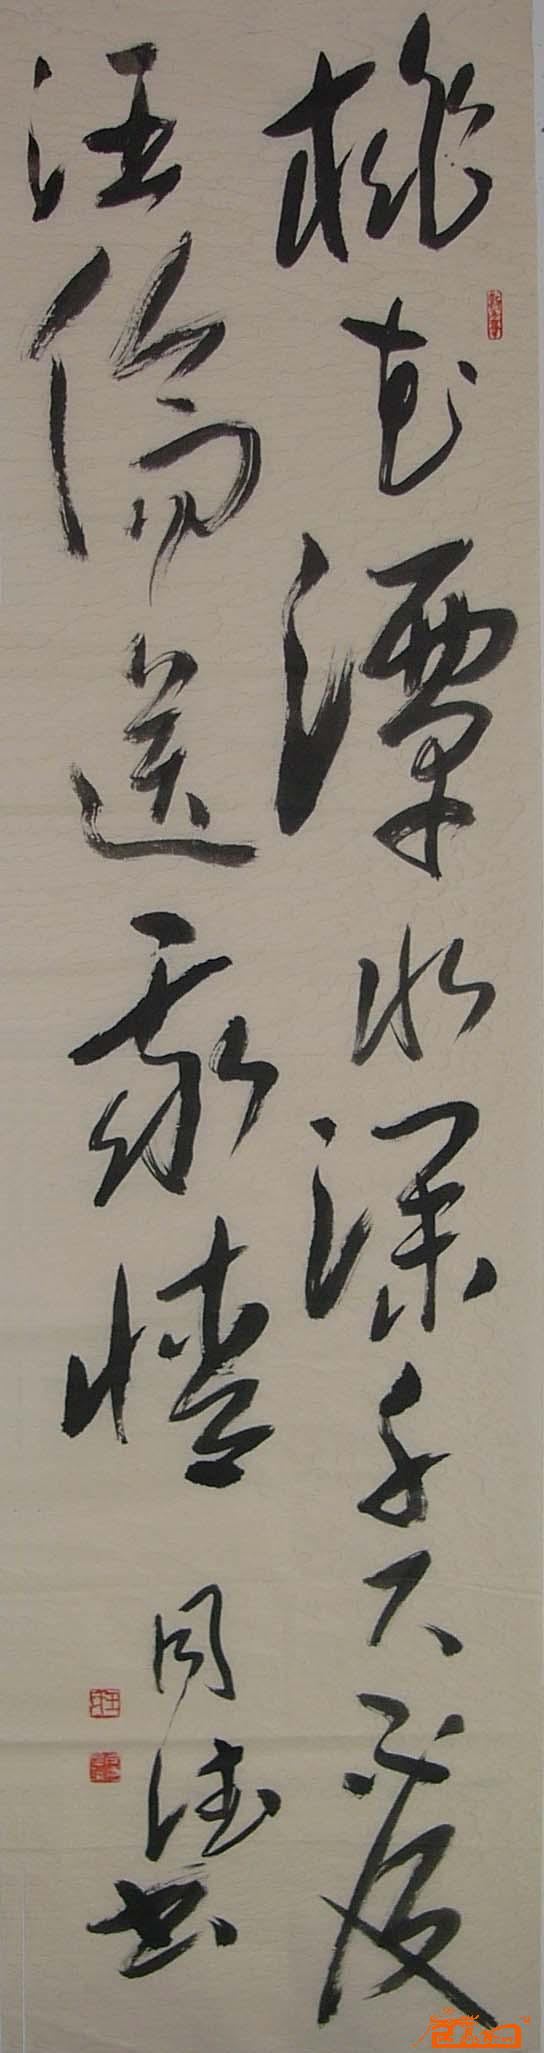 桃花潭水深千尺不及
汪伦送我情 同德书